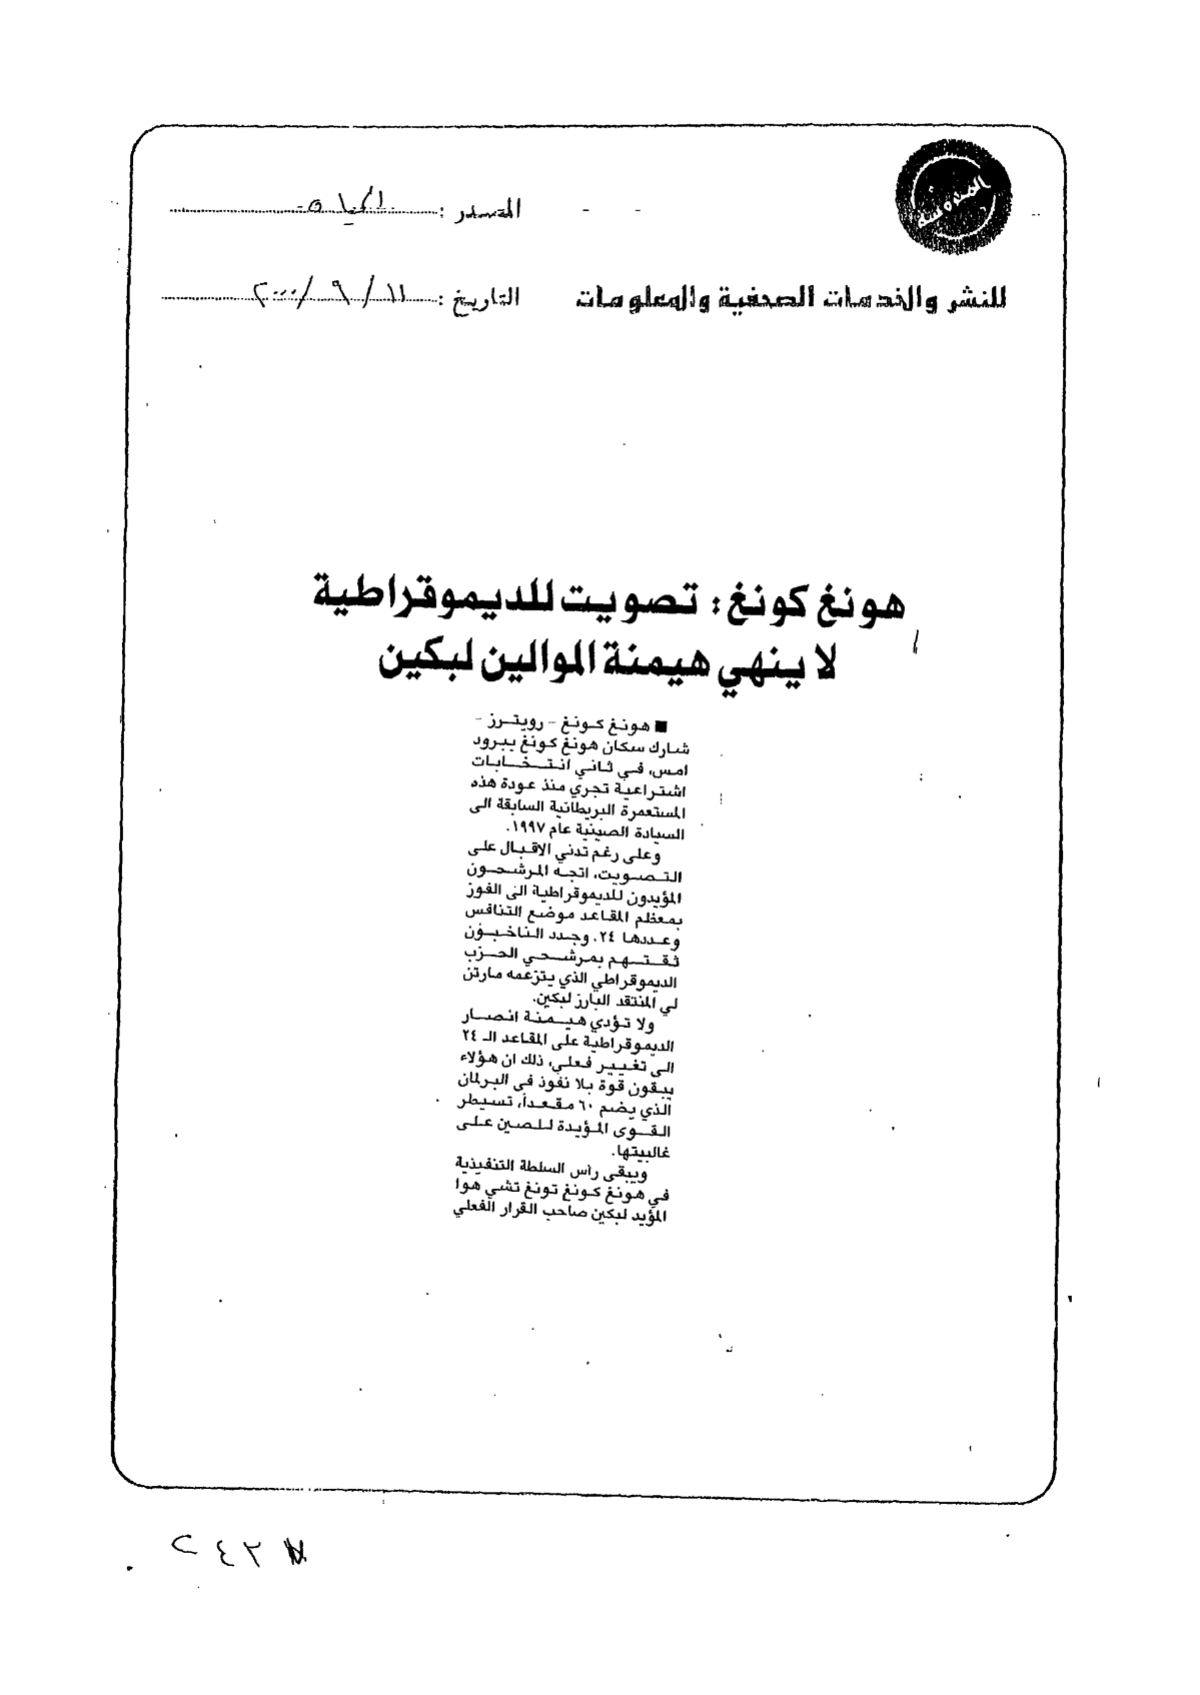 المصدر : الحياة
للنشر والخدمات الصحفية والمعلومات
التاريخ : ١١ / ٩ / ٢٠٠٠
هونغ كونغ: تصويت للديموقراطية
لا ينهي هيمنة الموالين لبكين
■ هونغ كونغ - رويترز -
شارك سكان هونغ كونغ ببرود
امس، في ثاني انتخابات
اشتراعية تجري منذ عودة هذه
المستعمرة البريطانية السابقة الى
السيادة الصينية عام ١٩٩٧.
وعلى رغم تدني الاقبال على
التصويت، اتجه المرشحون
المؤيدون للديموقراطية الى الفوز
بمعظم المقاعد موضع التنافس
وعددها ٢٤. وجدد الناخبون
ثقتهم بمرشحي الحزب
الديموقراطي الذي يتزعمه مارتن
لي المنتقد البارز لبكين.
ولا تؤدي هيمنة انصار
الديموقراطية على المقاعد الـ ٢٤
الى تغيير فعلي، ذلك ان هؤلاء
يبقون قوة بلا نفوذ في البرلمان
الذي يضم ٦٠ مقعداً، تسيطر
القوى المؤيدة للصين على
غالبيتها.
ويبقى رأس السلطة التنفيذية
في هونغ كونغ تونغ تشي هوا
المؤيد لبكين صاحب القرار الفعلي